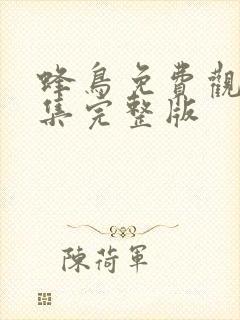 蜂鳥免費觀
集完整版
陳荷軍